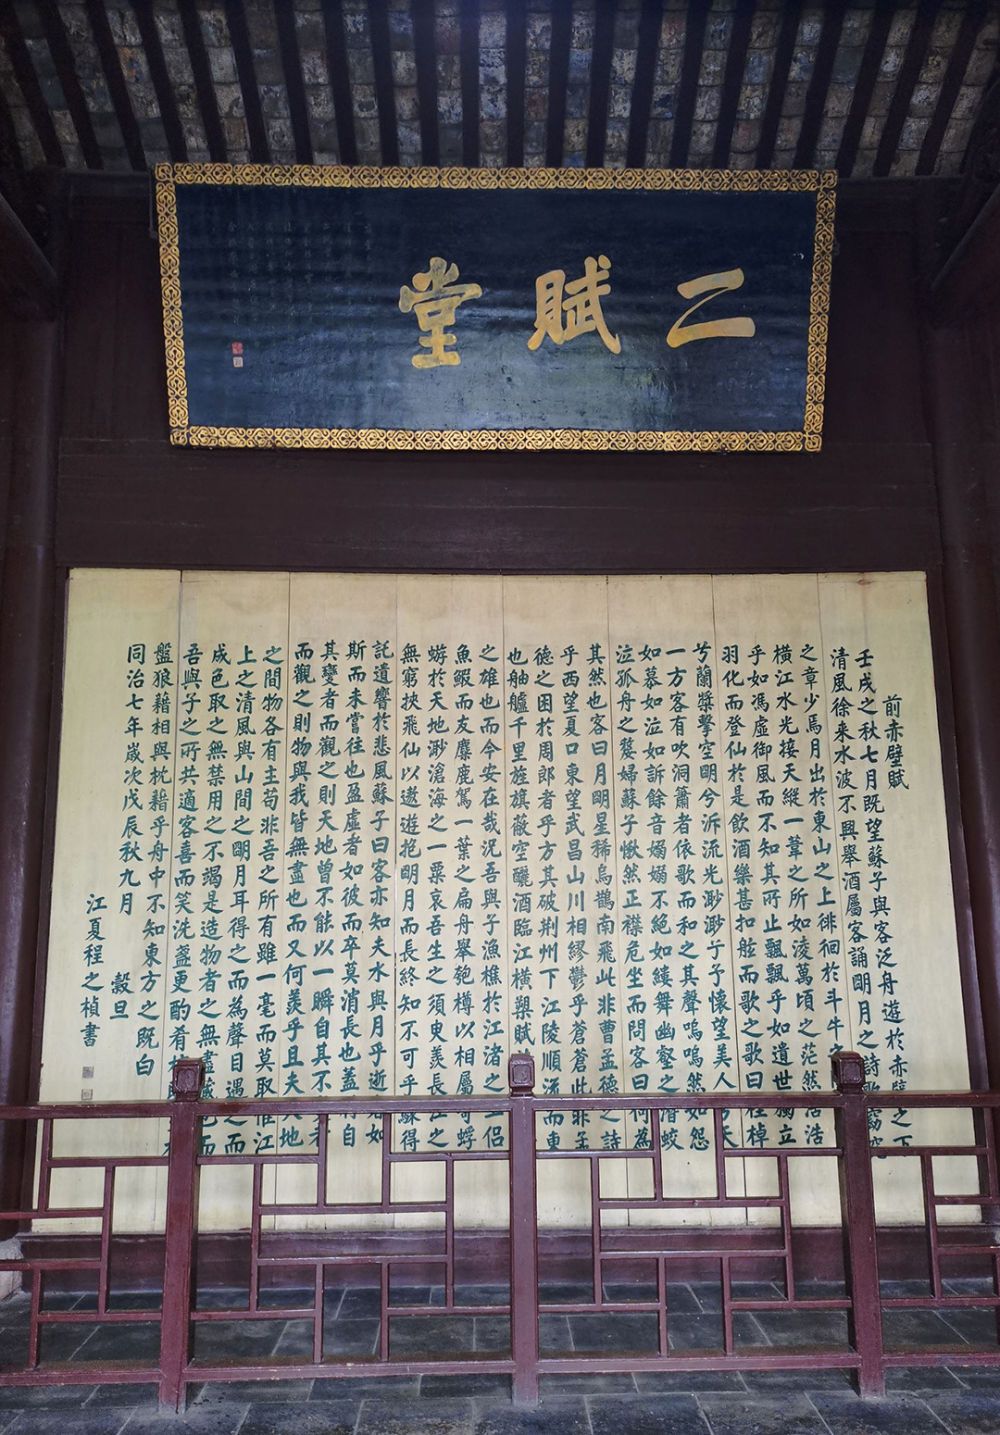 二賦堂
前赤壁賦
壬戌之秋七月既望蘇子與客泛舟遊於赤壁之下
清風徐来水波不興舉酒屬客誦明月之詩歌窈
之章少焉月出於東山之上徘徊於斗牛
橫江水光接天縱一葦之所如淩萬頃之茫然浩浩
乎如馮虛御風而不知其所止飄飄乎如遺世獨立
羽化而登仙於是飲酒樂甚扣舷而歌之歌曰桂棹
兮蘭槳擊空明兮泝流光渺渺兮予懷望美人兮天
一方客有吹洞簫者依歌而和之其聲嗚嗚然如怨
如慕如泣如訴餘音嫋嫋不絕如縷舞幽壑之潛蛟
泣孤舟之嫠婦蘇子愀然正襟危坐而問客曰何為
其然也客曰月明星稀烏鵲南飛此非曹孟德之詩
乎西望夏口東望武昌山川相繆鬱乎蒼蒼此非孟
德之困於周郎者乎方其破荆州下江陵順流而東
也舳艫千里旌旗蔽空釃酒臨江橫槊賦
之雄也而今安在哉況吾與子漁樵於江渚之上侶
魚鰕而友麋鹿駕一葉之扁舟舉匏樽以相屬寄蜉
蝣於天地渺滄海之一粟哀吾生之須臾羨長江之
無窮挾飛仙以遨遊抱明月而長終知不可乎驟得
託遺響於悲風蘇子曰客亦知夫水與月乎逝者如
斯而未嘗往也盈虛者如彼而卒莫消長也蓋將自
其變者而觀之則天地曾不能以一瞬自其不變者
而觀之則物與我皆無盡也而又何羨乎且夫天地
之間物各有主苟非吾之所有雖一毫而莫取惟江
上之清風與山間之明月耳得之而為聲目遇之而
成色取之無禁用之不竭是造物者之無盡藏也而
吾與子之所共適客喜而笑洗盞更酌肴核
盤狼藉相與枕藉乎舟中不知東方之既白
同治七年歲次戊辰秋九月 穀旦
江夏程之楨書